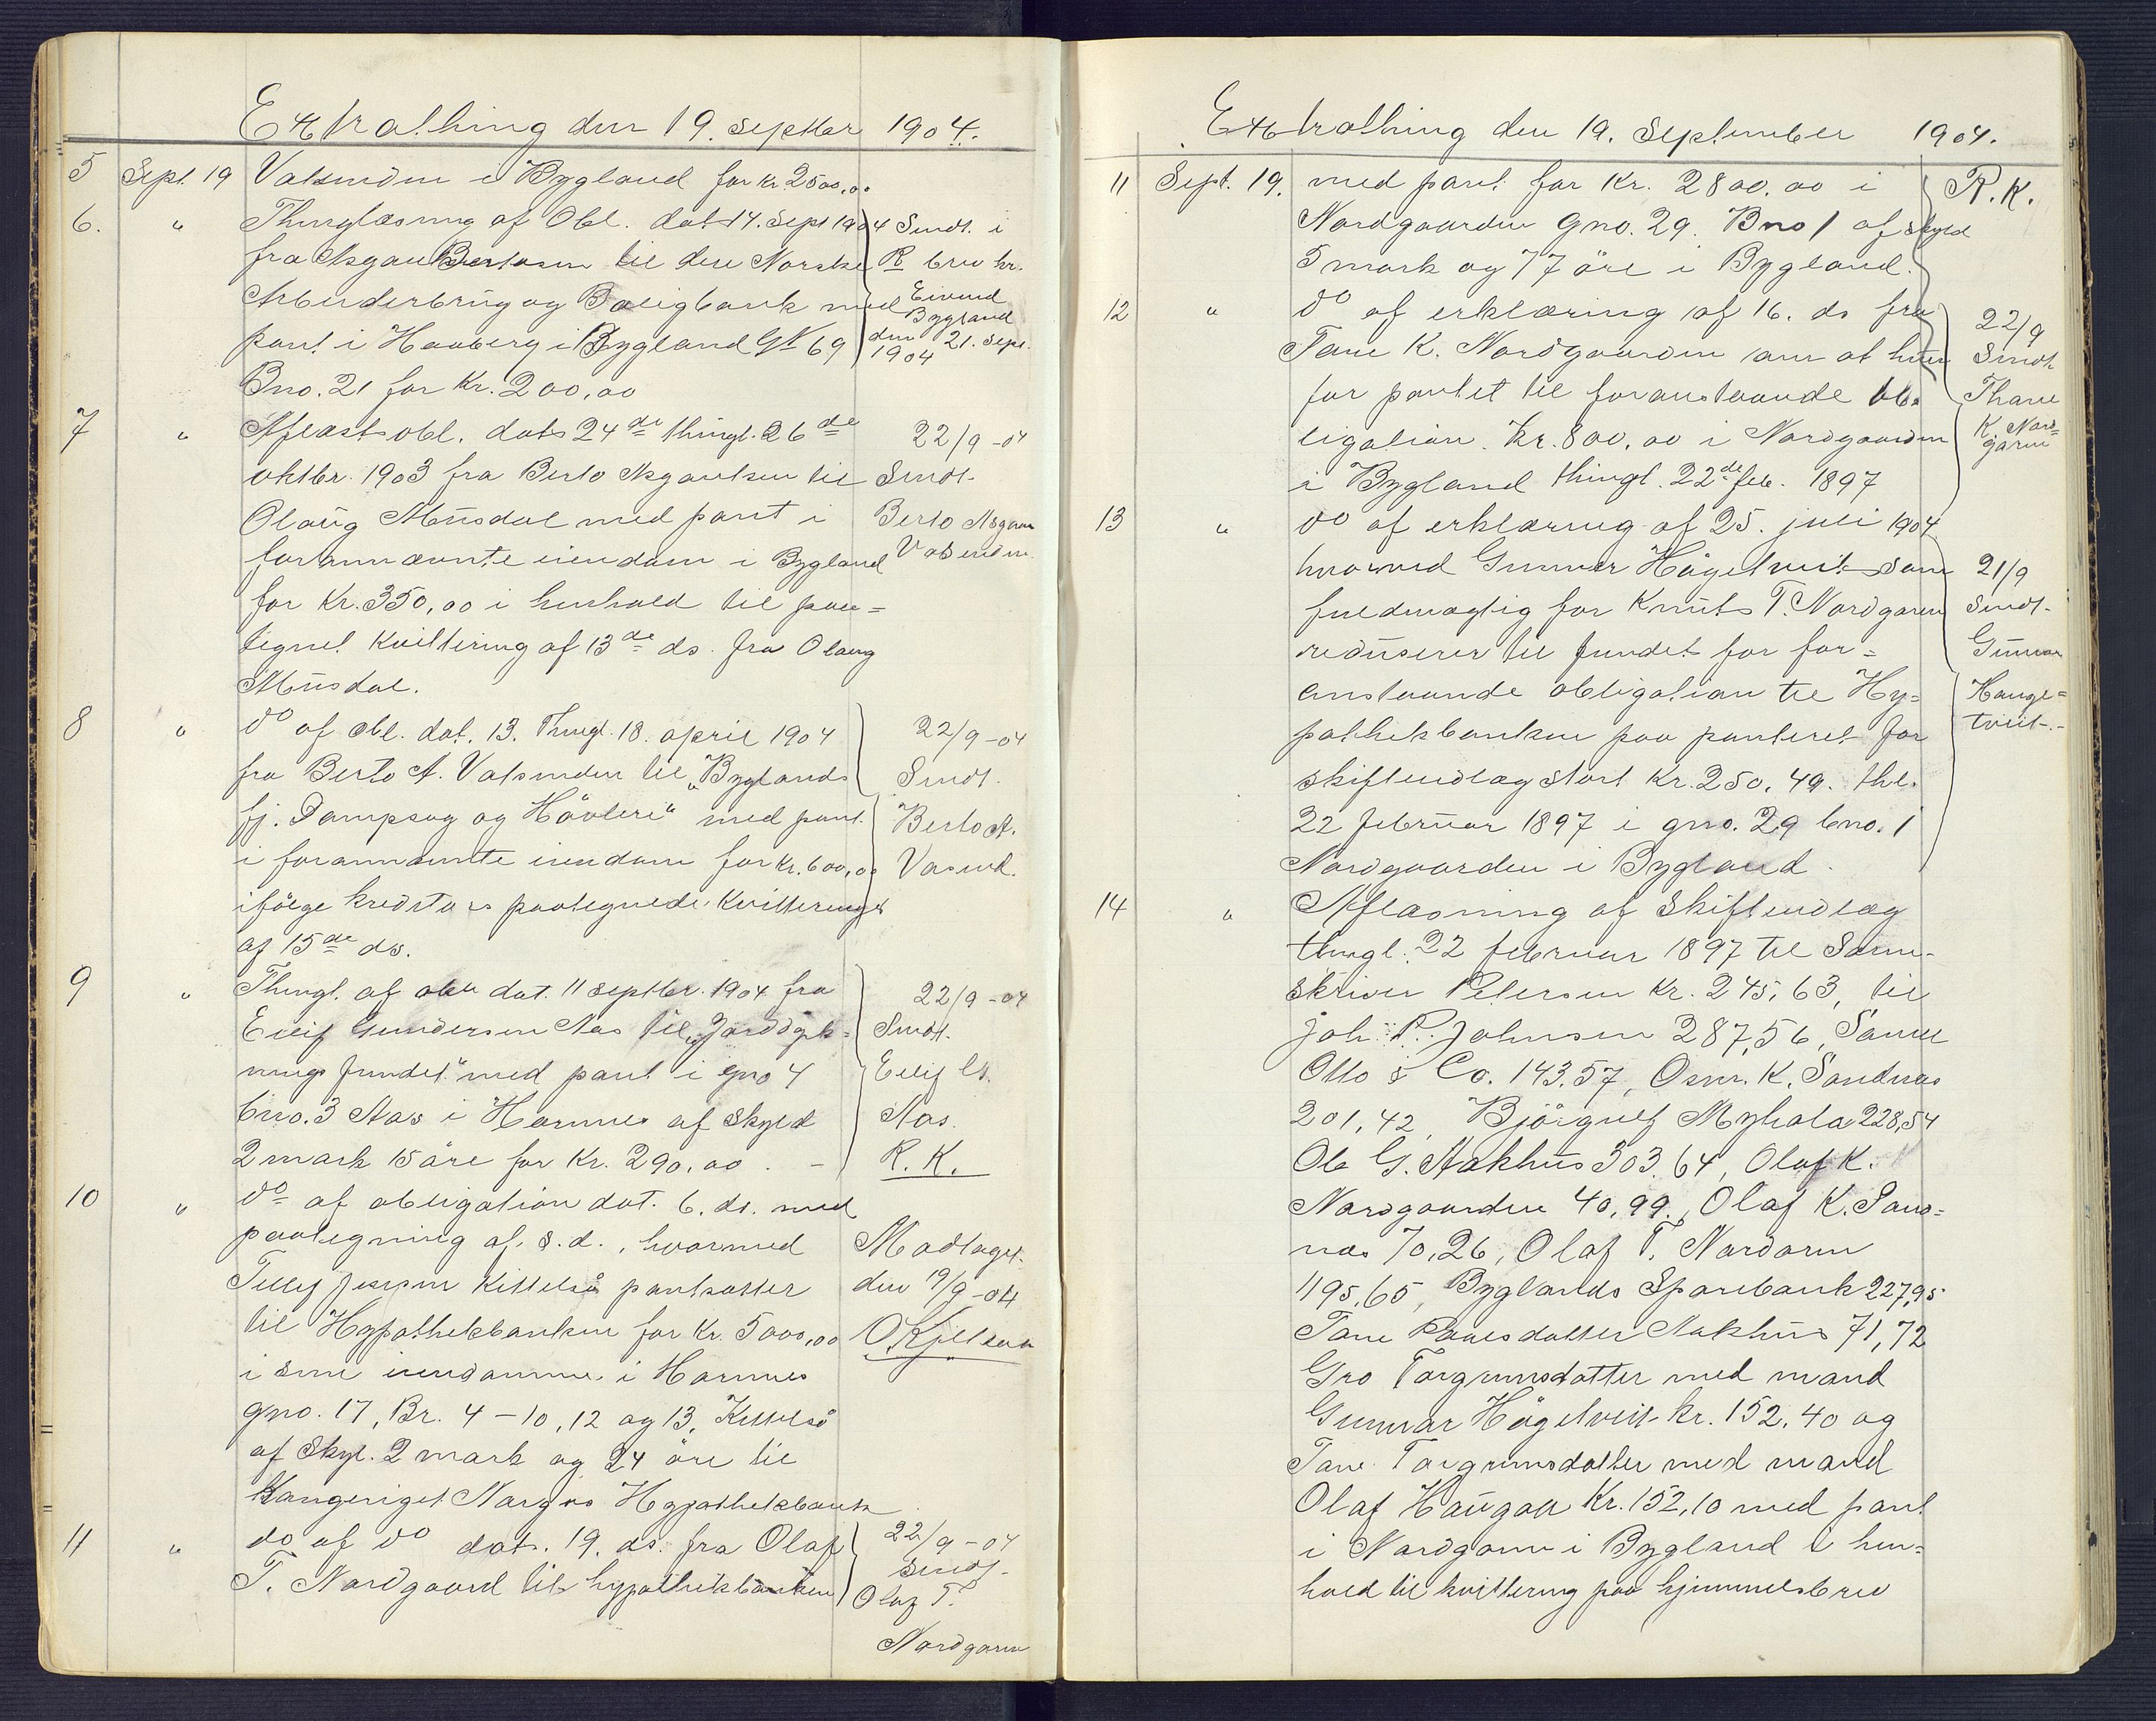 Extrathing den 19. septbr 1904.
5 Sept. 19 Valenden i Bygland for Kr. 2500,00
6. " Thinglæsning af Obl. dat. 14. Sept 1904 Sendt i
fra Asgaut Bertosen til den Norske R brev hr.
Arbeiderbrug og Boligbank med Eivind
Bygland
pant i Hauberg i Bygland GN 69 den 21. sept.
1904
Bno. 21 for Kr. 200,00
7 " Aflæst obl. dat. 24de thingl. 26de 22/9-04
oktbr. 1903 fra Berto Asgautsen til Sendt.
Olaug Musdal med pant i Berto Asgau
forannævnte eiendom i Bygland Valenden.
for Kr. 350,00 i henhold til paa=
tegnet Kvittering af 13de ds. fra Olaug
Musdal.
8 " do af obl. dat. 13. Thingl. 18. april 1904 22/9-04
fra Berto A. Valenden til "Byglands Sendt.
fj. Dampsag og Høvleri" med pant Berto A.
i forannævnte eiendom for Kr. 600,00 Valend.
ifølge kreditors paategnede Kvittering
af 15de ds.
9 " Thingl. af obl. dat. 11 septbr. 1904 fra 22/9-04
Eilif Gundersen Aas til "Jorddyrk= Sendt.
nings fundet" med pant i gno 4 Eilif G.
bno. 3 Aas i Hornnes af Skyld Aas.
2 mark 15 øre for Kr. 290,00. - R. K.
10 " do af obligation dat. 6. ds. med
paategning af s.d., hvormed Modtaget
Tellef Jensen Kittelså pantsætter den 19/9-04
til Hypothekbanken for Kr. 5000,00 O Kjelsaa
i sine eiendomme i Hornnes
gno. 17, Br. 4-10, 12 og 13, Kittelså
af Skyl. 2 mark og 24 öre til
Kongeriget Norges Hypothekbank
11 " do af do dat. 19. ds. fra Olaf 22/9-04
Sendt.
T. Nordgaard til hypothekbanken Olaf T.
Nordgaren
Extrathing den 19. September 1904.
11 Sept. 19. med pant for Kr. 2800.00 i R.K.
Nordgaarden gno. 29. Bno 1 af skyld
5 mark og 77 öre i Bygland.
12 " do af erklæring af 16. ds fra 22/9
Tane K. Nordgaarden om at hun Sendt
for pantet til foranstaaende ob= Thane
ligation. Kr. 800.00 i Nordgaarden K. Nord=
garen
i Bygland thingl. 22de feb. 1897
13 " do af erklæring af 25. juli 1904
hvorved Gunnar Högetveit som 21/9
fuldmægtig for Knuts T. Nordgaren Sendt.
reduserer til fundet for for= Gunnar
anstaaende obligation til Hy= Hauge=
tveit.
pothekbanken paa panteret for
skifteudlæg stort Kr. 250.49. thl.
22 februar 1897 i gno. 29 bno. 1
Nordgaarden i Bygland.
14 " Aflæsning af Skifteudlæg
thingl. 22 februar 1897 til Soren=
skriver Petersen Kr. 245,63, til
joh. P. Johnsen 287,56, Samuel
Otto & Co. 143.57, Osmr. K. Sandnes
201,42, Björgulf Myhala 228,54
Ole G. Aakhus 303.64, Olaf K.
Nordgaarden 40,99, Olaf K. Sand=
nes 70,26, Olaf T. Nordaren
1195,65, Byglands Sparebank 227,95
Tane Paalsdatter Aakhus 71,72
Gro Torgrimsdatter med mand
Gunnar Högetveit kr. 152.40 og
Tane Torgrimsdatter med mand
Olaf Haugaa Kr. 152,10 med pant
i Nordgaren i Bygland i hen=
hold til kvittering paa hjemmelsbrev